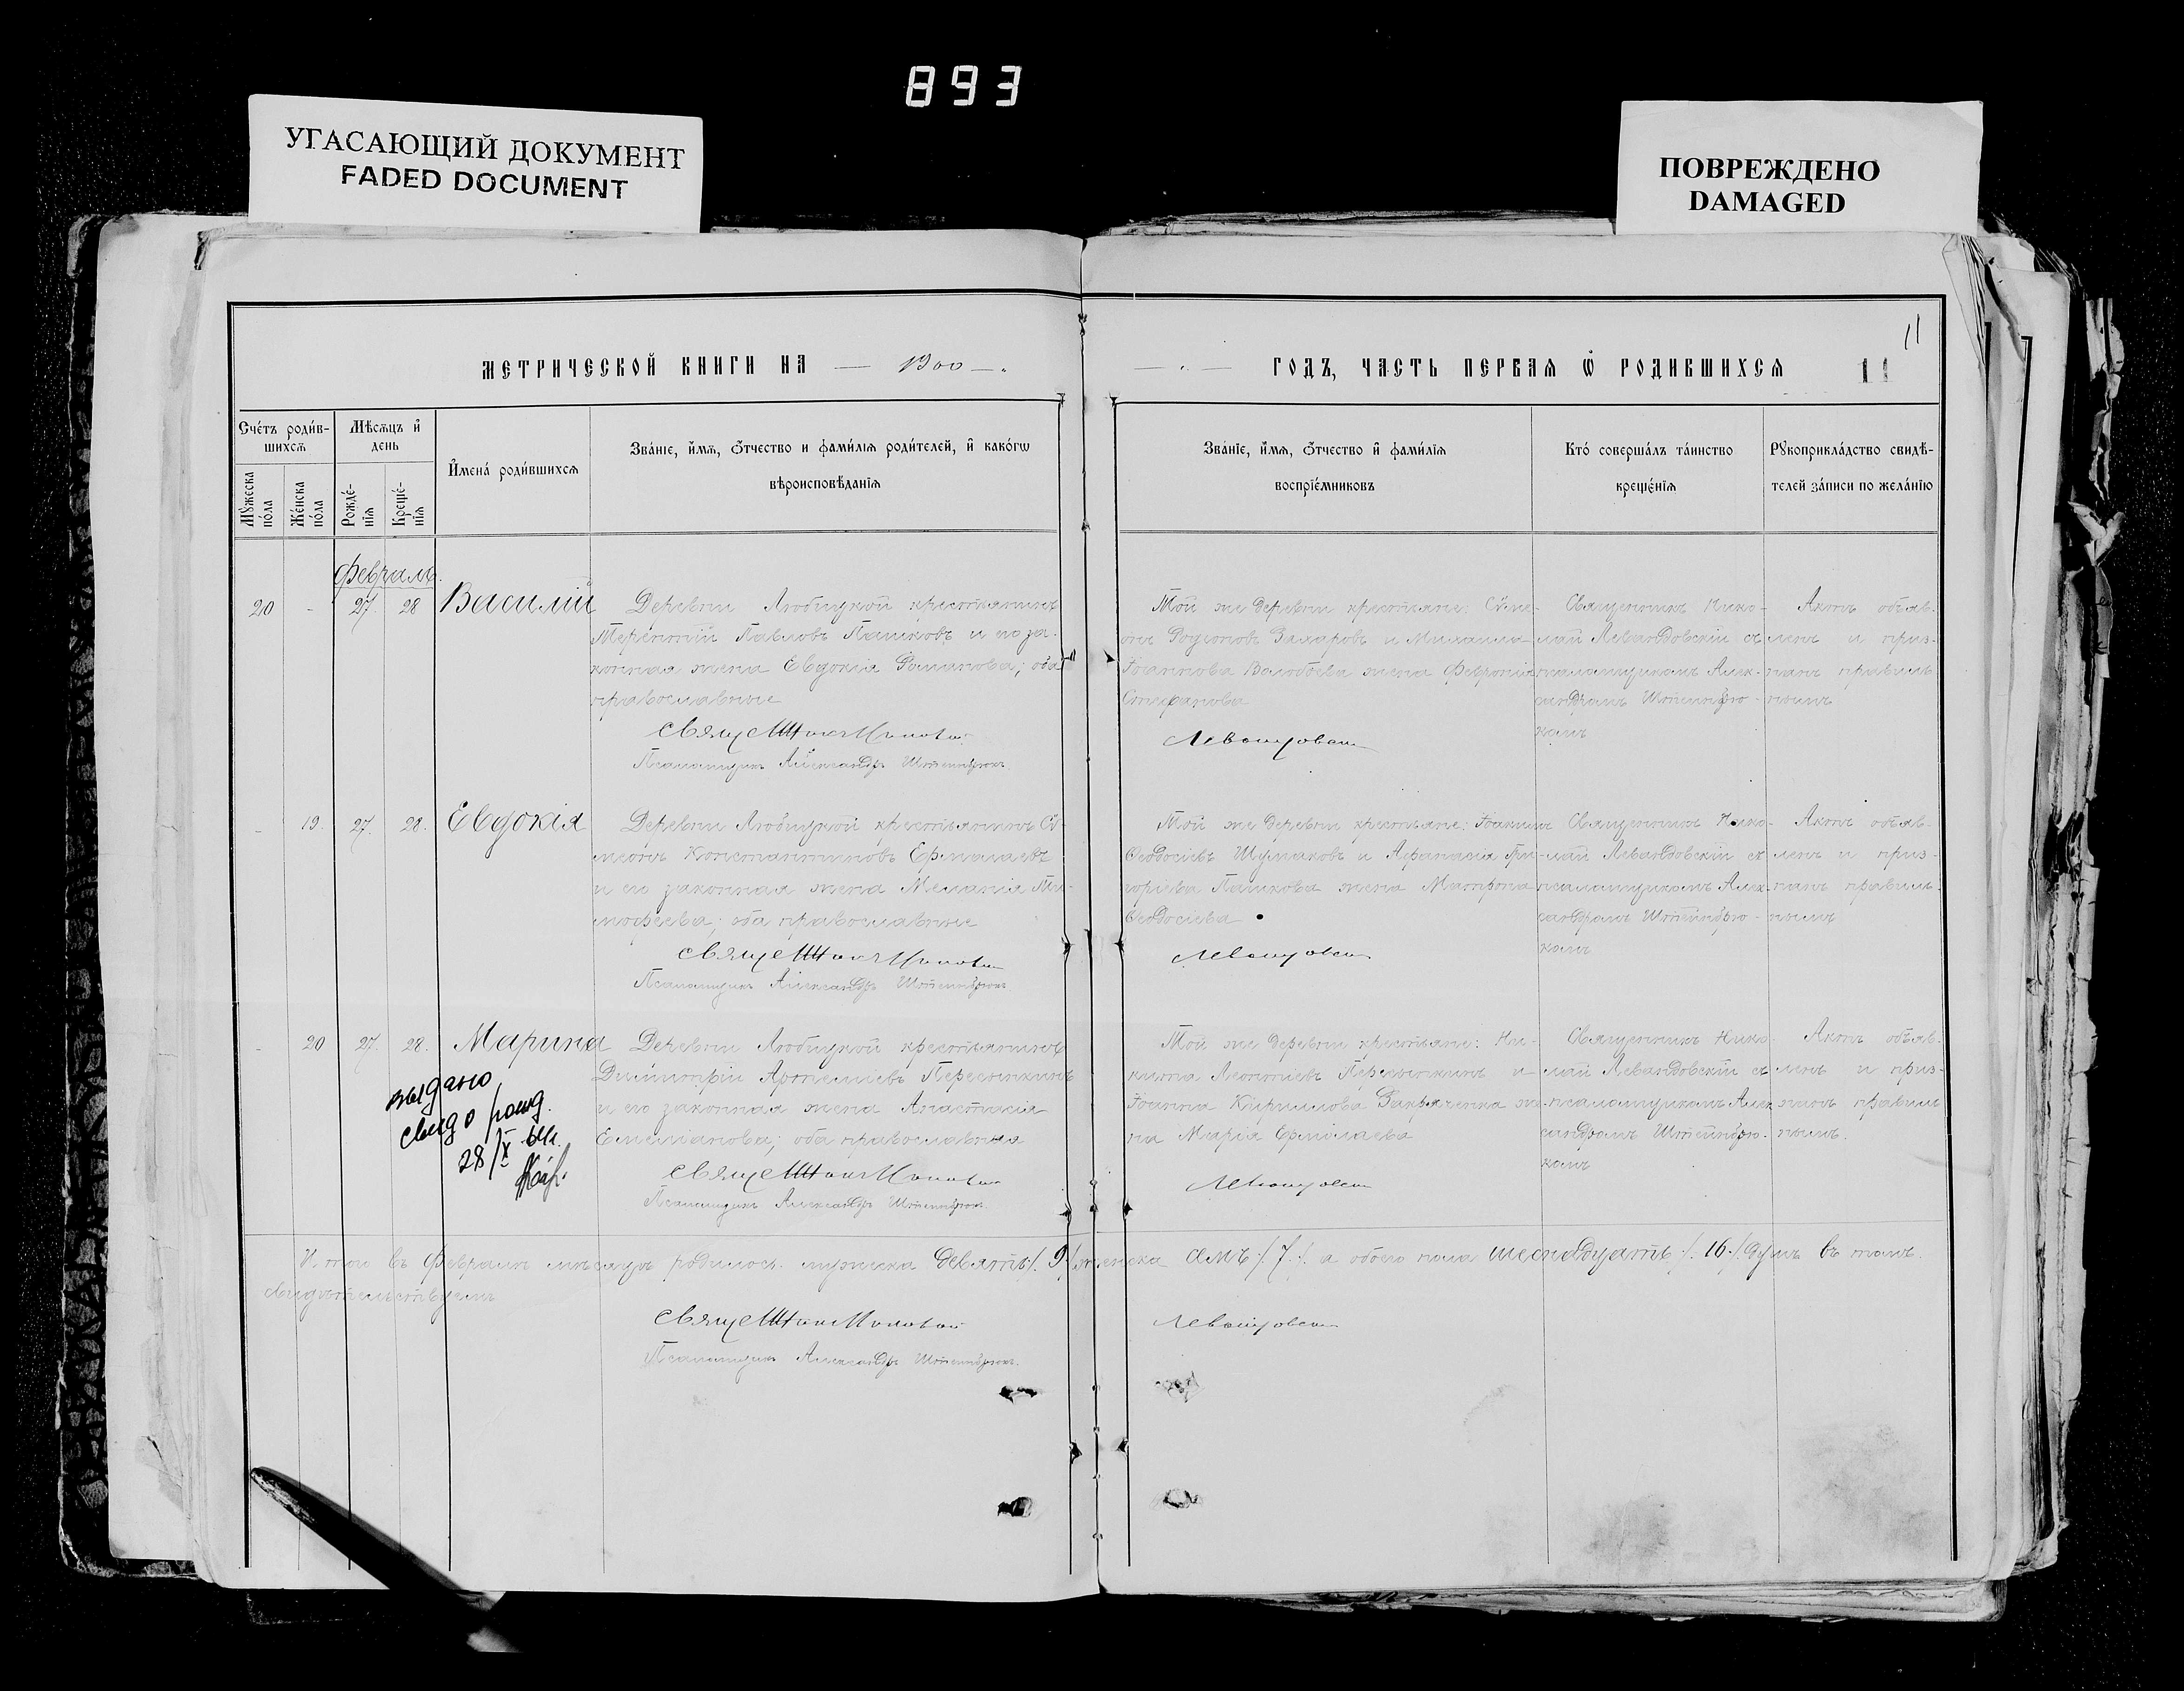 893
УГАСАЮЩИЙ ДОКУМЕНТ
FADED DOCUMENT
ПОВРЕЖДЕНО
DAMAGED
11
МЕТРИЧЕСКОЙ КНИГИ НА — 1900 —
ГОДЪ, ЧАСТЬ ПЕРВАѦ Ѡ РОДИВШИХСѦ 11
Сче́тъ роди́в-
шихсѧ
Мѣ́сѧцъ и҆
день
Мꙋ́жеска
по́ла
Же́нска
по́ла
Рожде́-
нїѧ
Креще́-
нїѧ
И҆мена̀ роди́вшихсѧ
Зва́нїе, и҆́мѧ, ѻ҆́тчество и фами́лїѧ роди́телей, и҆ како́гѡ
вѣроисповѣ́данїѧ
Зва́нїе, и҆́мѧ, ѻ҆́тчество и҆ фами́лїѧ
воспрїе́мниковъ
Кто̀ соверша́лъ та́инство
креще́нїѧ
Рꙋкоприкла́дство свидѣ́-
телей за́писи по жела́нїю
Февраль.
20 - 27. 28 Василій
Деревни Любицкой крестьянинъ
Терентій Павловъ Пашковъ и его за-
конная жена Евдокія Романова; оба
православные
Священникъ Николай
Псаломщикъ Александръ Штейнбрюкъ.
Той же деревни крестьяне: Сѵме-
онъ Родіоновъ Захаровъ и Михаила
Іоаннова Волобоева жена Февронія
Стефанова
Левандовскій
Священникъ Нико-
лай Левандовскій съ
псаломщикомъ Алек-
сандромъ Штейнбрю-
комъ
Актъ объяв-
ленъ и приз-
нанъ правиль-
нымъ
- 19. 27. 28. Евдокія
Деревни Любицкой крестьянинъ Сѵ-
меонъ Константиновъ Ермолаевъ
и его законная жена Меланія Ти-
мофеева; оба православные
Священникъ Николай
Псаломщикъ Александръ Штейнбрюкъ.
Той же деревни крестьяне: Іоакимъ
Ѳеодосіевъ Шумаковъ и Аѳанасія Гри-
горіева Пашкова жена Матрона
Ѳеодосіева
Левандовскій
Священникъ Нико-
лай Левандовскій съ
псаломщикомъ Алек-
сандромъ Штейнбрю-
комъ
Актъ объяв-
ленъ и приз-
нанъ правиль-
нымъ
- 20 27. 28. Марина
выдано
свид о рожд.
28/X
Деревни Любицкой крестьянинъ
Димитрій Артеміевъ Пересыпкинъ
и его законная жена Анастасія
Емеліанова; оба православныя
Священникъ Николай
Псаломщикъ Александръ Штейнбрюкъ.
Той же деревни крестьяне: Ни-
кита Леонтіевъ Пересыпкинъ и
Іоанна Кириллова же-
на Марія Ермолаева
Левандовскій
Священникъ Нико-
лай Левандовскій съ
псаломщикомъ Алек-
сандромъ Штейнбрю-
комъ
Актъ объяв-
ленъ и приз-
нанъ правиль-
нымъ.
Итого въ Февралѣ мѣсяцѣ родилось мужеска девять /.9./ женска семь /.7./. а обоего пола шеснадцать /.16./ душъ въ томъ
свидѣтельствуемъ
Священникъ Николай Левандовскій
Псаломщикъ Александръ Штейнбрюкъ.